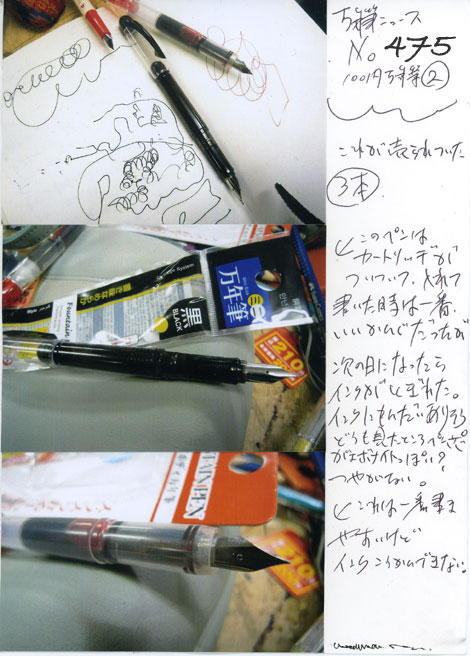 万年筆ニュース
No 475
100円万年筆②
これが売られていた
3本
このペンは
カートリッヂが
ついていて、入れて
書いた時は一番、
いいかんじだったが
次の日になったら
インクがとぎれた。
インクにもんだいありそう
どうも見たところペン芯
がエボナイトっぽい?
つやがない。
これは一番書き
やすいけど
インクこうかんできない。
Fountain
黒
BLACK
万年筆
210
TAIN PEN